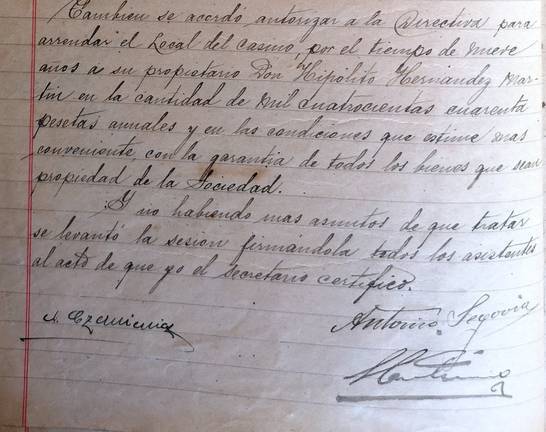 Tambien se acordó autorizar a la Directiva para
arrendar el Local del casino, por el tiempo de nueve
años a su propietario Don Hipólito Hernandez Mar-
tin en la cantidad de mil cuatrocientas cuarenta
pesetas anuales y en las condiciones que estime mas
conveniente, con la garantia de todos los bienes que sean
propiedad de la Sociedad.
Y no habiendo mas asuntos de que tratar
se levantó la sesion firmándola todos los asistentes
al acto de que yo el secretario certifico.
Antonio Segovia